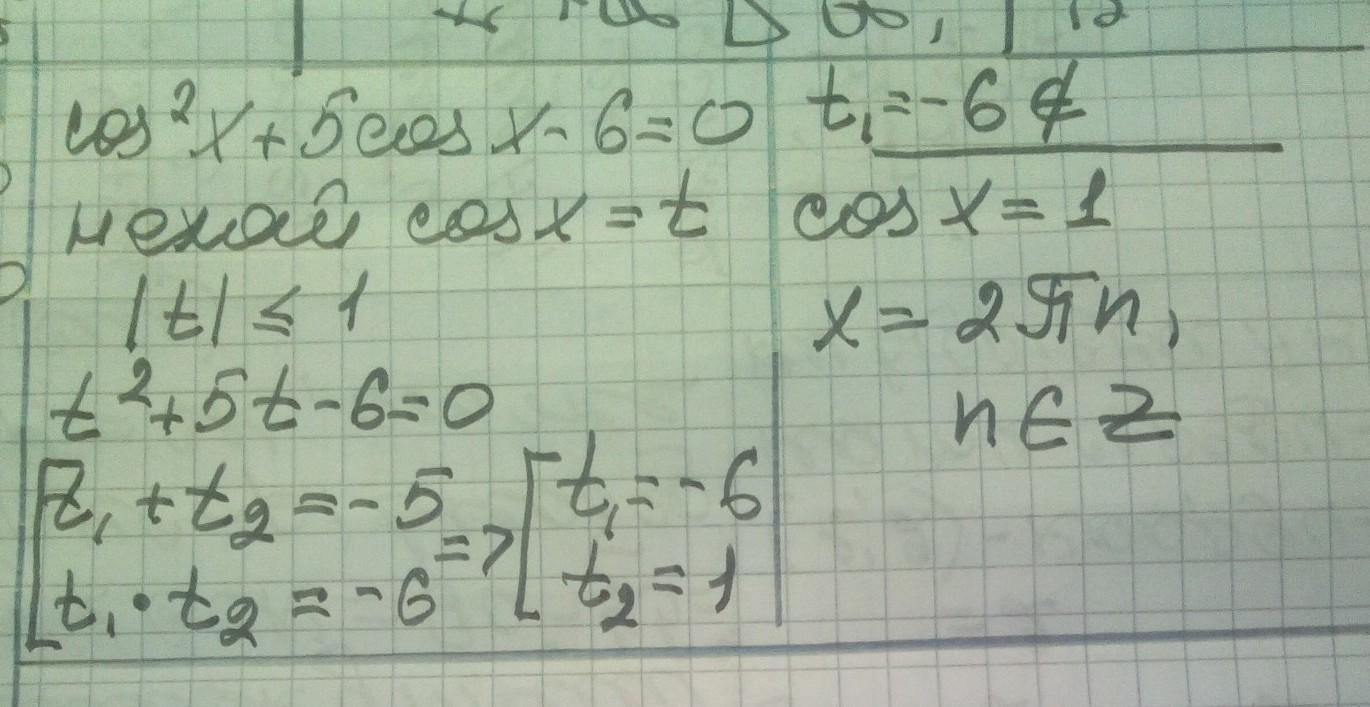 cos²x + 5cos x - 6 = 0
нехай cos x = t
|t| ≤ 1
t² + 5t - 6 = 0
[t₁ + t₂ = -5
t₁ · t₂ = -6
=> [t₁ = -6
t₂ = 1
t₁ = -6 ∉
cos x = 1
x = 2πn,
n ∈ Z